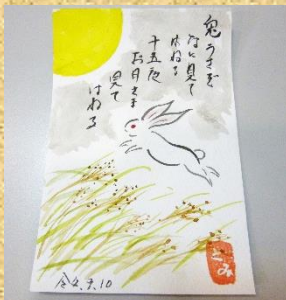 兎うさぎ
なに見て
はねる
十五夜
お月さま
見て
はねる
きみ
令4.9.10